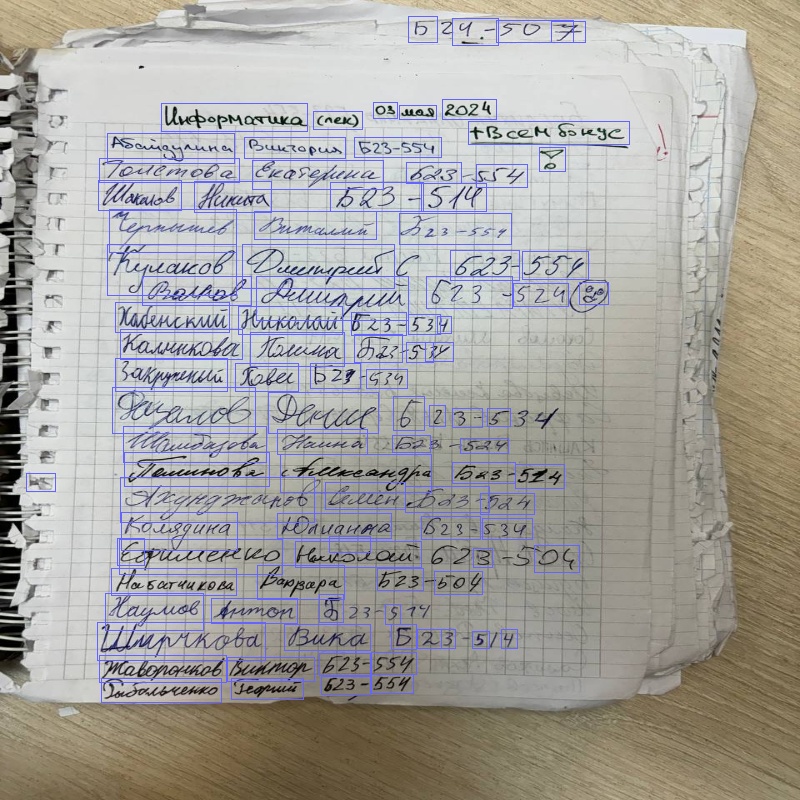 Б24-507
Информатика (лек) 03 мая 2024
+Всем бонус
Абайдулина Виктория Б23-554
Толстова Екатерина Б23-554
Шакалов Никита Б23-514
Чернышев Виталий Б23-554
Кулаков Дмитрий С Б23-554
Волков Дмитрий Б23-524
Хабенский Николай Б23-534
Калинкова Полина Б23-534
Закружный Павел Б23-534
Денис Б23-534
Шамбазова Наина Б23-524
Поминова Александра Б23-514
Ахунджанов Семён Б23-524
Колядина Юлианна Б23-534
Ефименко Николай Б23-504
Набатчикова Варвара Б23-504
Наумов Антон Б23-514
Вика Б23-514
Жаворонков Виктор Б23-554
Георгий Б23-554